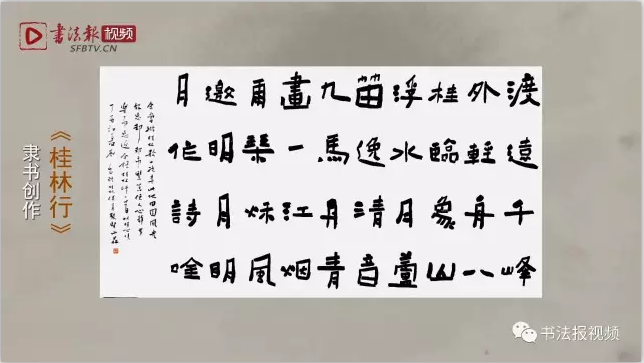 书法報视频
SFBTV.CN
《桂林行》
隶书创作
渡遠千峰
外輕舟八
桂臨象山
浮水月蘆
笛逸清音
九馬丹青
畫一江烟
雨琴秌風
邀明月明
月作詩唫
书法报视频